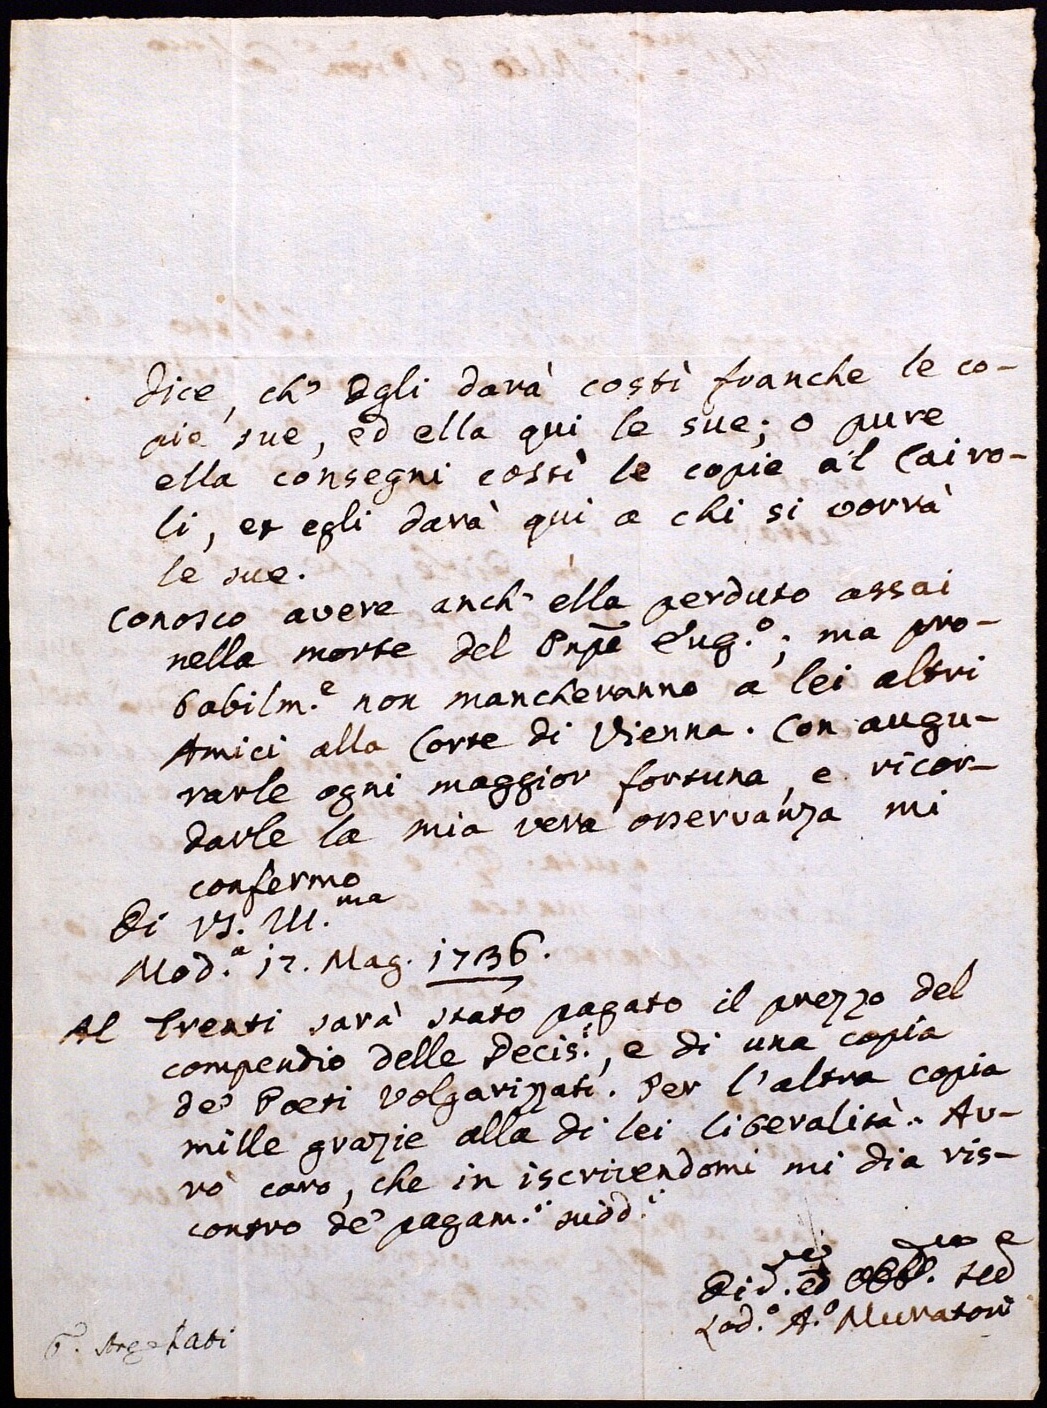 dice, ch' Egli darà costì franche le co-
pie sue, ed ella qui le sue; o pure
ella consegni costì le copie al Cairo-
li, et egli darà qui a chi si vorrà
le sue.
Conosco avere anch' ella perduto assai
nella morte del Pnpe Eug.º; ma pro-
babilm.e non mancheranno a lei altri
Amici alla Corte di Vienna. Con augu-
rarle ogni maggior fortuna, e ricor-
darle la mia vera osservanza mi
confermo
Di VS. Ill.ma
Mod.a 17. Mag. 1736.
Al Trenti sarà stato pagato il prezzo del
compendio delle Decis.i, e di una copia
de' Poeti Volgarizzati. Per l'altra copia
mille grazie alla di lei liberalità. Av-
rò caro, che in iscrivendomi mi dia ris-
contro de' pagam.ti sudd.ti
ed Obbl.
Lod.º A.º Muratori
Argelati